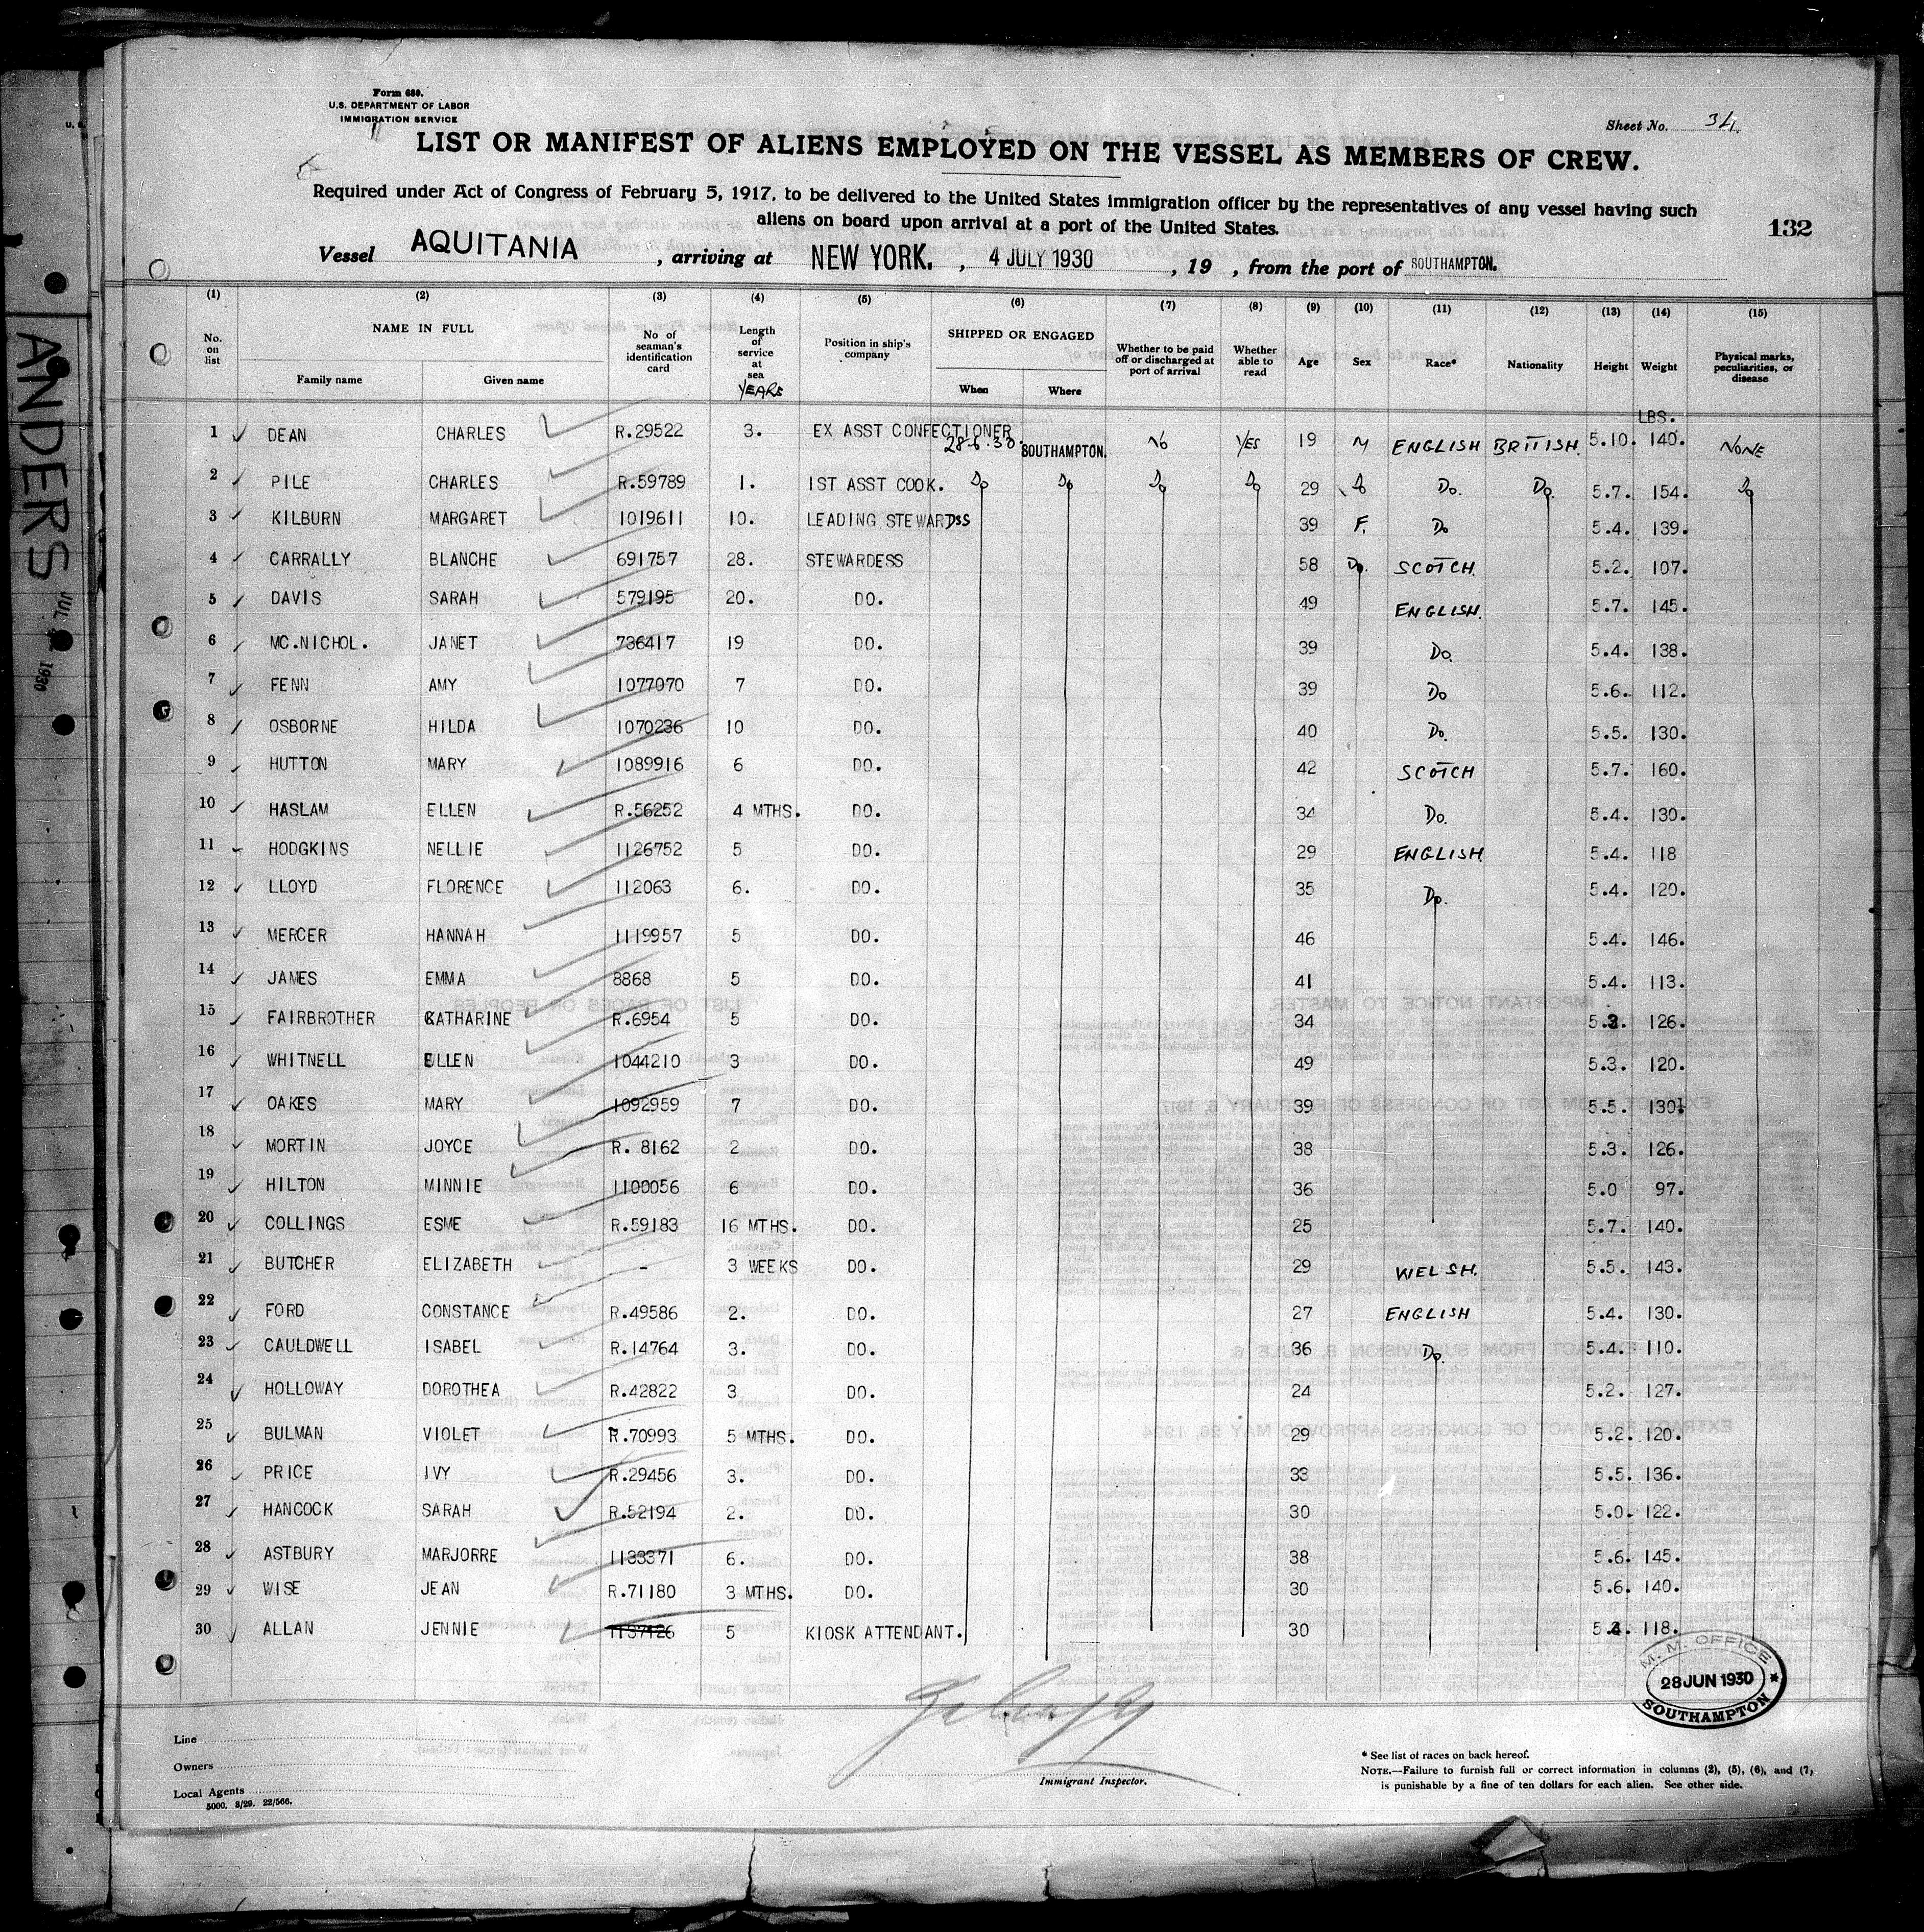 Form 680.
U.S. DEPARTMENT OF LABOR
IMMIGRATION SERVICE
Sheet No. 34.
LIST OR MANIFEST OF ALIENS EMPLOYED ON THE VESSEL AS MEMBERS OF CREW.
Required under Act of Congress of February 5, 1917, to be delivered to the United States immigration officer by the representatives of any vessel having such
aliens on board upon arrival at a port of the United States.
132
Vessel AQUITANIA, arriving at NEW YORK., 4 JULY 1930, 19 , from the port of SOUTHAMPTON.
(1) (2) (3) (4) (5) (6) (7) (8) (9) (10) (11) (12) (13) (14) (15)
No. on list NAME IN FULL Family name Given name No of seaman's identification card Length of service at sea YEARS Position in ship's company SHIPPED OR ENGAGED When Where Whether to be paid off or discharged at port of arrival Whether able to read Age Sex Race* Nationality Height Weight Physical marks, peculiarities, or disease
LBS.
1 DEAN CHARLES R.29522 3. EX ASST CONFECTIONER 28-6-30. SOUTHAMPTON. No YES 19 M ENGLISH BRITISH. 5.10. 140. NONE
2 PILE CHARLES R.59789 1. 1ST ASST COOK. Do Do Do Do 29 Do Do. Do. 5.7. 154. Do
3 KILBURN MARGARET 1019611 10. LEADING STEWARDSS 39 F. Do 5.4. 139.
4 CARRALLY BLANCHE 691757 28. STEWARDESS 58 Do. SCOTCH. 5.2. 107.
5 DAVIS SARAH 579195 20. DO. 49 ENGLISH. 5.7. 145.
6 MC.NICHOL. JANET 736417 19 DO. 39 Do. 5.4. 138.
7 FENN AMY 1077070 7 DO. 39 Do 5.6. 112.
8 OSBORNE HILDA 1070236 10 DO. 40 Do. 5.5. 130.
9 HUTTON MARY 1089916 6 DO. 42 SCOTCH 5.7. 160.
10 HASLAM ELLEN R.56252 4 MTHS. DO. 34 Do. 5.4. 130.
11 HODGKINS NELLIE 1126752 5 DO. 29 ENGLISH. 5.4. 118
12 LLOYD FLORENCE 112063 6. DO. 35 Do. 5.4. 120.
13 MERCER HANNAH 1119957 5 DO. 46 5.4. 146.
14 JAMES EMMA 8868 5 DO. 41 5.4. 113.
15 FAIRBROTHER KATHARINE R.6954 5 DO. 34 126.
16 WHITNELL ELLEN 1044210 3 DO. 49 5.3. 120.
17 OAKES MARY 1092959 7 DO. 39 5.5. 130.
18 MORTIN JOYCE R. 8162 2 DO. 38 5.3. 126.
19 HILTON MINNIE 1100056 6 DO. 36 5.0 97.
20 COLLINGS ESME R.59183 16 MTHS. DO. 25 5.7. 140.
21 BUTCHER ELIZABETH - 3 WEEKS DO. 29 WELSH. 5.5. 143.
22 FORD CONSTANCE R.49586 2. DO. 27 ENGLISH 5.4. 130.
23 CAULDWELL ISABEL R.14764 3. DO. 36 Do. 5.4. 110.
24 HOLLOWAY DOROTHEA R.42822 3 DO. 24 5.2. 127.
25 BULMAN VIOLET R.70993 5 MTHS. DO. 29 5.2. 120.
26 PRICE IVY R.29456 3. DO. 33 5.5. 136.
27 HANCOCK SARAH R.52194 2. DO. 30 5.0. 122.
28 ASTBURY MARJORRE 1133371 6. DO. 38 5.6. 145.
29 WISE JEAN R.71180 3 MTHS. DO. 30 5.6. 140.
30 ALLAN JENNIE 1137126 5 KIOSK ATTENDANT. 30 118.
M. M. OFFICE
28 JUN 1930
SOUTHAMPTON
Line
Owners
Local Agents
5000. 8/29. 22/566.
Immigrant Inspector.
* See list of races on back hereof.
NOTE.—Failure to furnish full or correct information in columns (2), (5), (6), and (7,
is punishable by a fine of ten dollars for each alien. See other side.
ANDERS
JUL
1930